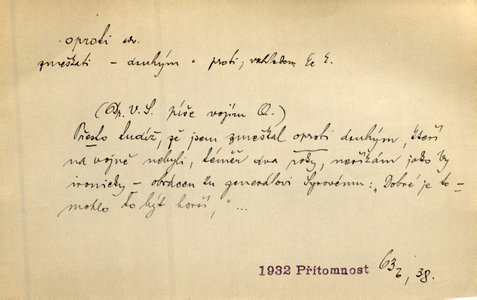 oproti adv.
zmeškati - druhým = proti, vzhledem k č.
(Dp. V. S. píše vojín Q.)
Přesto tudíž, že jsem zmeškal oproti druhým, kteří
na vojně nebyli, téměř dva roky, neříkám jako by
ironicky - obrácen ku generálovi Syrovému: „Dobré je to -
mohlo to být horší," ...
1932 Přítomnost 63₂, 38.